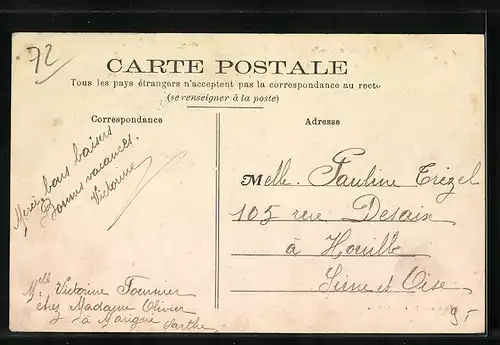 72
CARTE POSTALE
Tous les pays étrangers n'acceptent pas la correspondance au recto
(se renseigner à la poste)
Correspondance
Adresse
Merci, bons baisers
Bonnes vacances.
Victorine
Melle. Pauline Trézel
105 rue Desaix
à Houille
Seine et Oise
Melle Victorine Fournier
chez Madame Olivier
à Marigné Sarthe